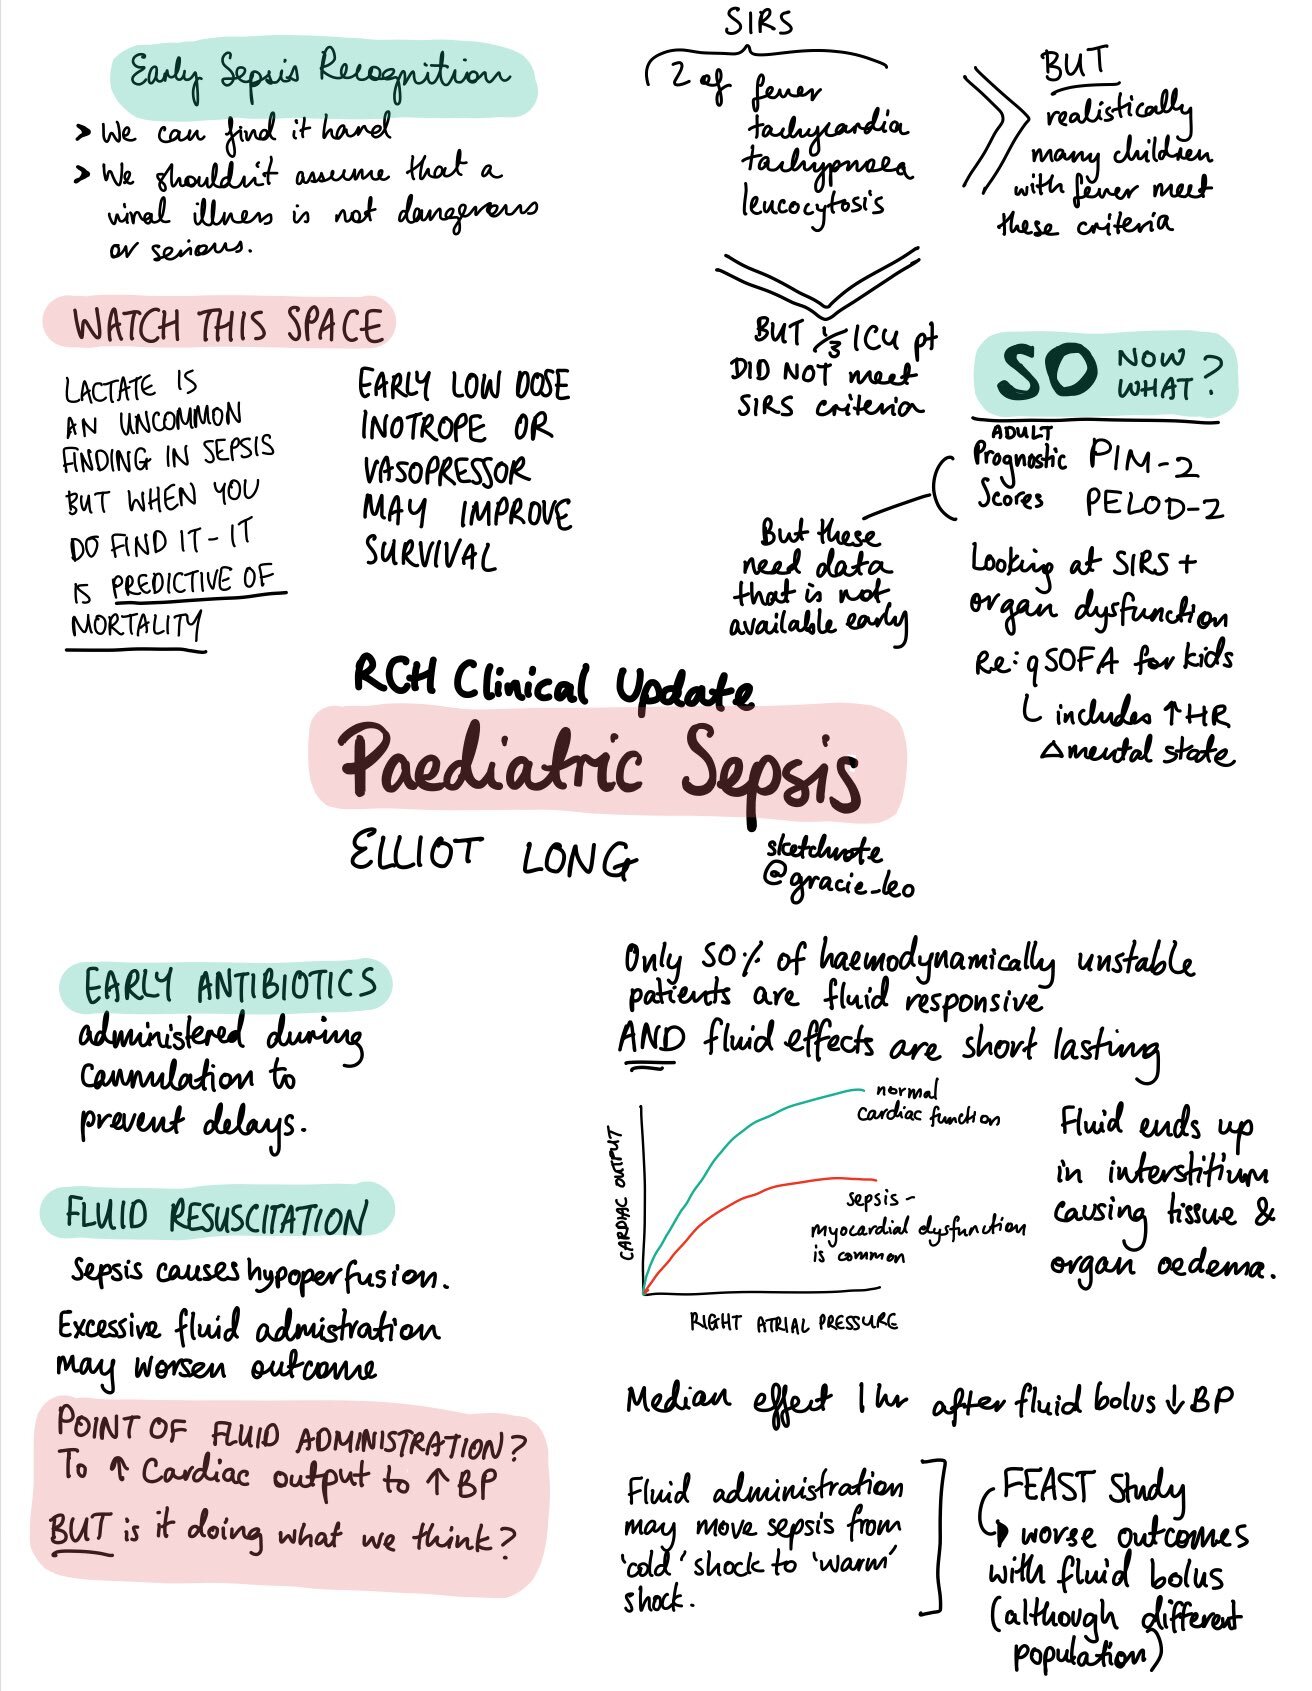 Early Sepsis Recognition
> We can find it hard
> We shouldn't assume that a
viral illness is not dangerous
or serious.
SIRS
2 of fever
tachycardia
tachypnoea
leucocytosis
BUT
realistically
many children
with fever meet
these criteria
BUT 1/3 ICU pt
DID NOT meet
SIRS criteria
WATCH THIS SPACE
LACTATE IS
AN UNCOMMON
FINDING IN SEPSIS
BUT WHEN YOU
DO FIND IT - IT
IS PREDICTIVE OF
MORTALITY
EARLY LOW DOSE
INOTROPE OR
VASOPRESSOR
MAY IMPROVE
SURVIVAL
SO NOW
WHAT?
ADULT
Prognostic PIM-2
Scores PELOD-2
But these
need data
that is not
available early
Looking at SIRS +
organ dysfunction
Re: qSOFA for kids
includes ↑HR
△ mental state
RCH Clinical Update
Paediatric Sepsis
ELLIOT LONG
sketchnote
@gracie_leo
EARLY ANTIBIOTICS
administered during
cannulation to
prevent delays.
FLUID RESUSCITATION
Sepsis causes hypoperfusion.
Excessive fluid admistration
may worsen outcome
POINT OF FLUID ADMINISTRATION?
To ↑ Cardiac output to ↑ BP
BUT is it doing what we think?
Only 50% of haemodynamically unstable
patients are fluid responsive
AND fluid effects are short lasting
normal
cardiac function
CARDIAC OUTPUT
sepsis -
myocardial dysfunction
is common
RIGHT ATRIAL PRESSURE
Fluid ends up
in interstitium
causing tissue &
organ oedema.
Median effect 1 hr after fluid bolus ↓ BP
Fluid administration
may move sepsis from
'cold' shock to 'warm'
shock.
FEAST Study
worse outcomes
with fluid bolus
(although different
population)